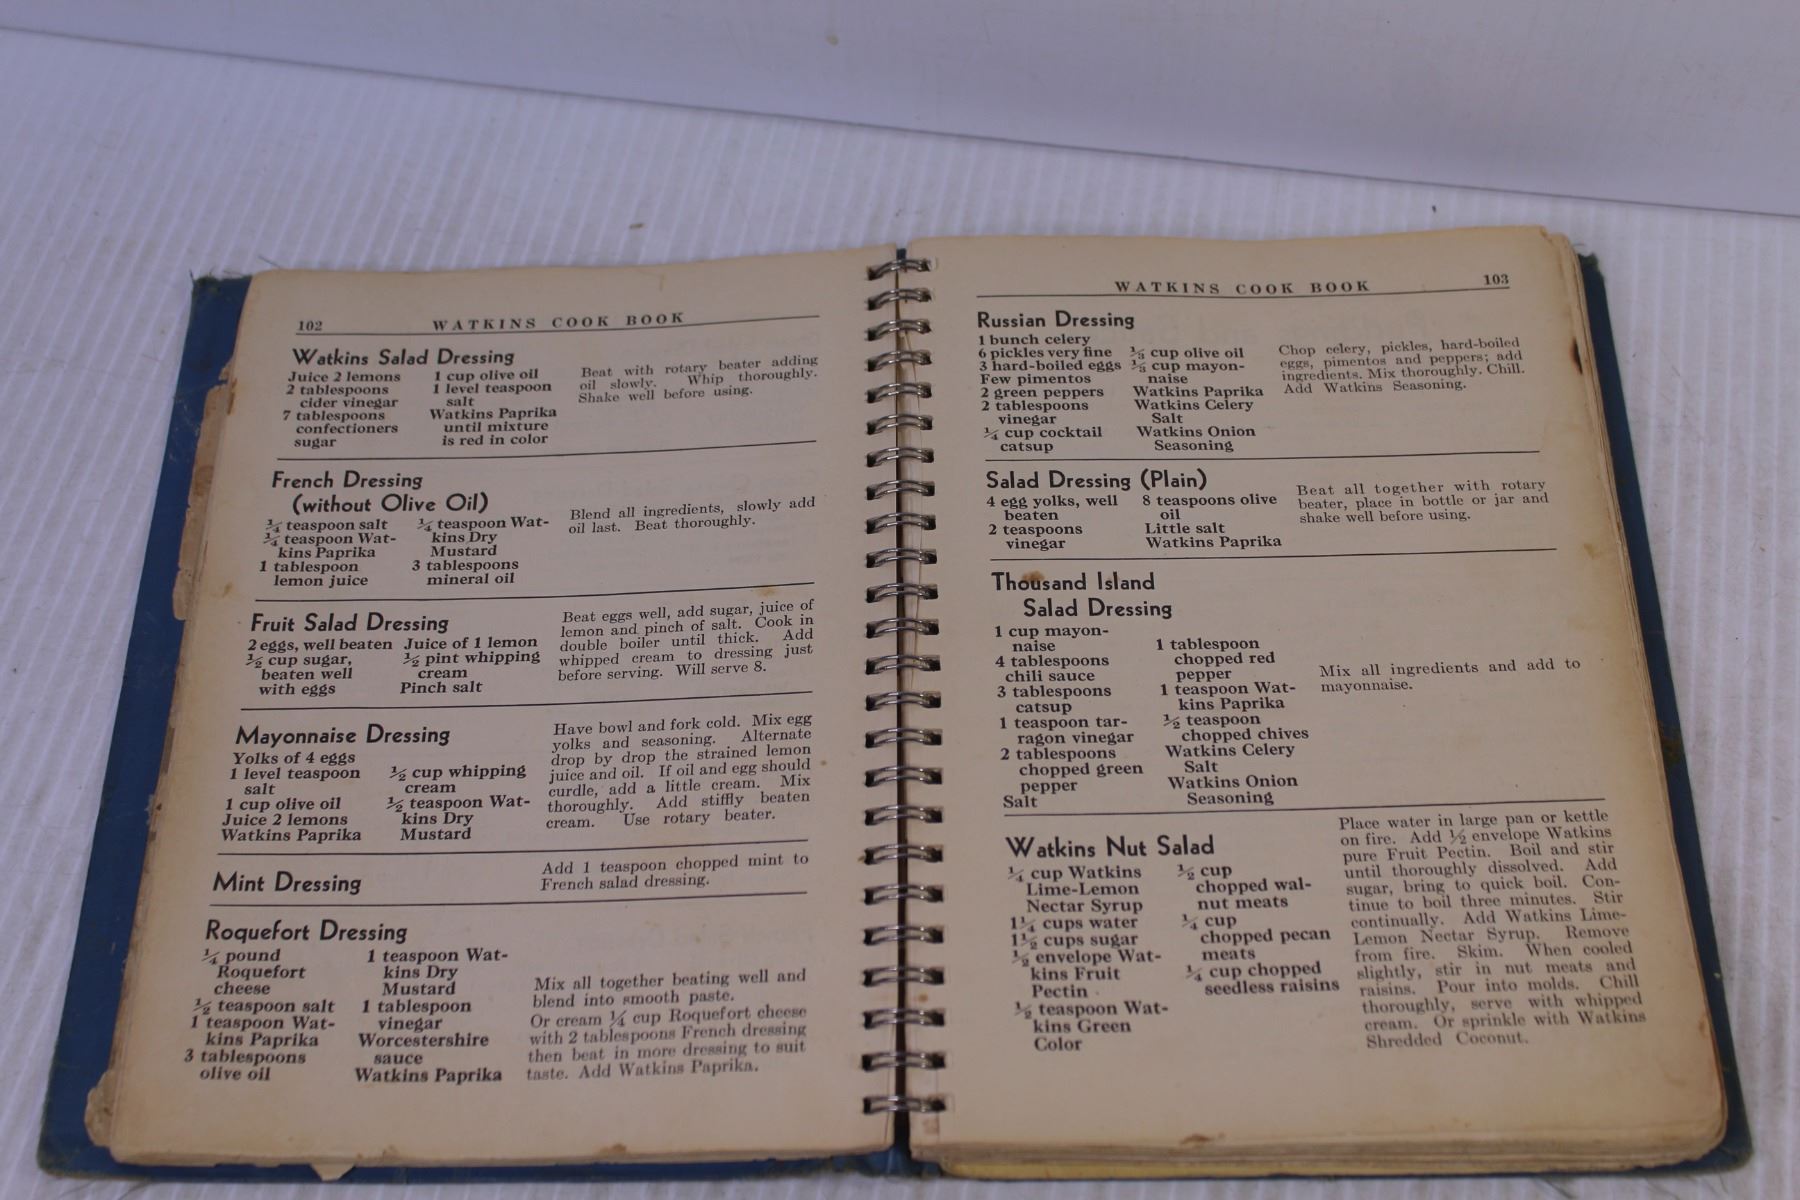 102
WATKINS COOK BOOK
Watkins Salad Dressing
Juice 2 lemons
2 tablespoons
cider vinegar
7 tablespoons
confectioners
sugar
1 cup olive oil
1 level teaspoon
salt
Watkins Paprika
until mixture
is red in color
Beat with rotary beater adding
oil slowly. Whip thoroughly.
Shake well before using.
French Dressing
(without Olive Oil)
¼ teaspoon salt
¼ teaspoon Wat-
kins Paprika
1 tablespoon
lemon juice
¼ teaspoon Wat-
kins Dry
Mustard
3 tablespoons
mineral oil
Blend all ingredients, slowly add
oil last. Beat thoroughly.
Fruit Salad Dressing
2 eggs, well beaten
½ cup sugar,
beaten well
with eggs
Juice of 1 lemon
½ pint whipping
cream
Pinch salt
Beat eggs well, add sugar, juice of
lemon and pinch of salt. Cook in
double boiler until thick. Add
whipped cream to dressing just
before serving. Will serve 8.
Mayonnaise Dressing
Yolks of 4 eggs
1 level teaspoon
salt
1 cup olive oil
Juice 2 lemons
Watkins Paprika
½ cup whipping
cream
½ teaspoon Wat-
kins Dry
Mustard
Have bowl and fork cold. Mix egg
yolks and seasoning. Alternate
drop by drop the strained lemon
juice and oil. If oil and egg should
curdle, add a little cream. Mix
thoroughly. Add stiffly beaten
cream. Use rotary beater.
Mint Dressing
Add 1 teaspoon chopped mint to
French salad dressing.
Roquefort Dressing
¼ pound
Roquefort
cheese
½ teaspoon salt
1 teaspoon Wat-
kins Paprika
3 tablespoons
olive oil
1 teaspoon Wat-
kins Dry
Mustard
1 tablespoon
vinegar
Worcestershire
sauce
Watkins Paprika
Mix all together beating well and
blend into smooth paste.
Or cream ¼ cup Roquefort cheese
with 2 tablespoons French dressing
then beat in more dressing to suit
taste. Add Watkins Paprika.
WATKINS COOK BOOK
103
Russian Dressing
1 bunch celery
6 pickles very fine
3 hard-boiled eggs
Few pimentos
2 green peppers
2 tablespoons
vinegar
¼ cup cocktail
catsup
⅓ cup olive oil
⅓ cup mayon-
naise
Watkins Paprika
Watkins Celery
Salt
Watkins Onion
Seasoning
Chop celery, pickles, hard-boiled
eggs, pimentos and peppers; add
ingredients. Mix thoroughly. Chill.
Add Watkins Seasoning.
Salad Dressing (Plain)
4 egg yolks, well
beaten
2 teaspoons
vinegar
8 teaspoons olive
oil
Little salt
Watkins Paprika
Beat all together with rotary
beater, place in bottle or jar and
shake well before using.
Thousand Island
Salad Dressing
1 cup mayon-
naise
4 tablespoons
chili sauce
3 tablespoons
catsup
1 teaspoon tar-
ragon vinegar
2 tablespoons
chopped green
pepper
Salt
1 tablespoon
chopped red
pepper
1 teaspoon Wat-
kins Paprika
½ teaspoon
chopped chives
Watkins Celery
Salt
Watkins Onion
Seasoning
Mix all ingredients and add to
mayonnaise.
Watkins Nut Salad
¼ cup Watkins
Lime-Lemon
Nectar Syrup
1¼ cups water
1½ cups sugar
½ envelope Wat-
kins Fruit
Pectin
½ teaspoon Wat-
kins Green
Color
½ cup
chopped wal-
nut meats
¼ cup
chopped pecan
meats
¼ cup chopped
seedless raisins
Place water in large pan or kettle
on fire. Add ½ envelope Watkins
pure Fruit Pectin. Boil and stir
until thoroughly dissolved. Add
sugar, bring to quick boil. Con-
tinue to boil three minutes. Stir
continually. Add Watkins Lime-
Lemon Nectar Syrup. Remove
from fire. Skim. When cooled
slightly, stir in nut meats and
raisins. Pour into molds. Chill
thoroughly, serve with whipped
cream. Or sprinkle with Watkins
Shredded Coconut.